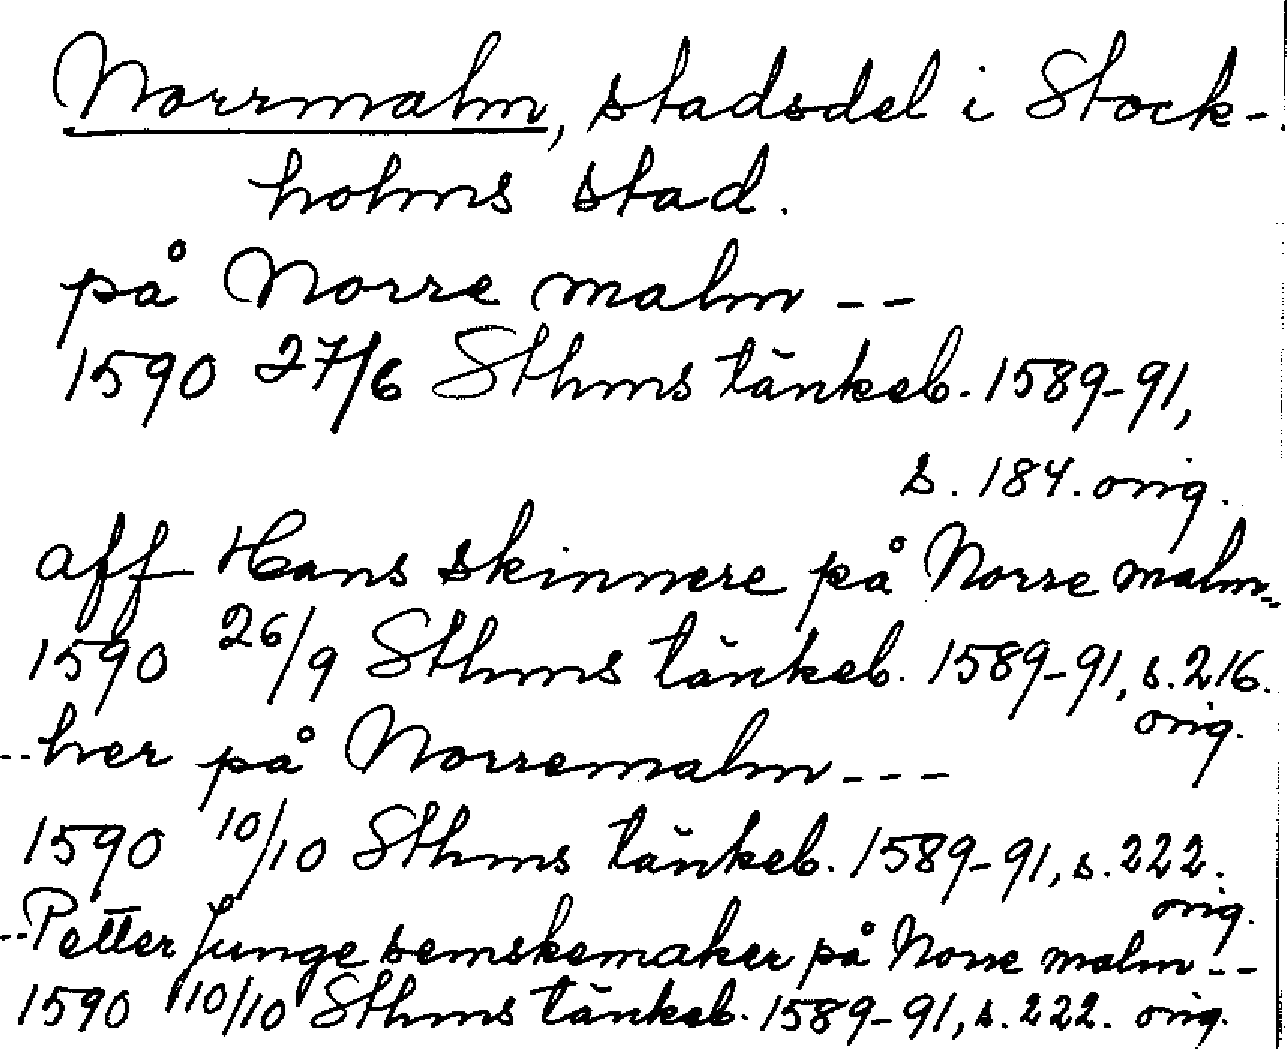 Norrmalm, stadsdel i Stock-
holms stad.
på Norre malm --
1590 27/6 Sthms tänkeb. 1589-91,
s. 184. orig.
aff Hans skinnere på Norre malm--
1590 26/9 Sthms tänkeb. 1589-91, s. 216.
orig.
--her på Norremalm---
1590 10/10 Sthms tänkeb. 1589-91, s. 222.
orig.
--Petter Junge semskemaker på Norre malm--
1590 10/10 Sthms tänkeb. 1589-91, s. 222. orig.